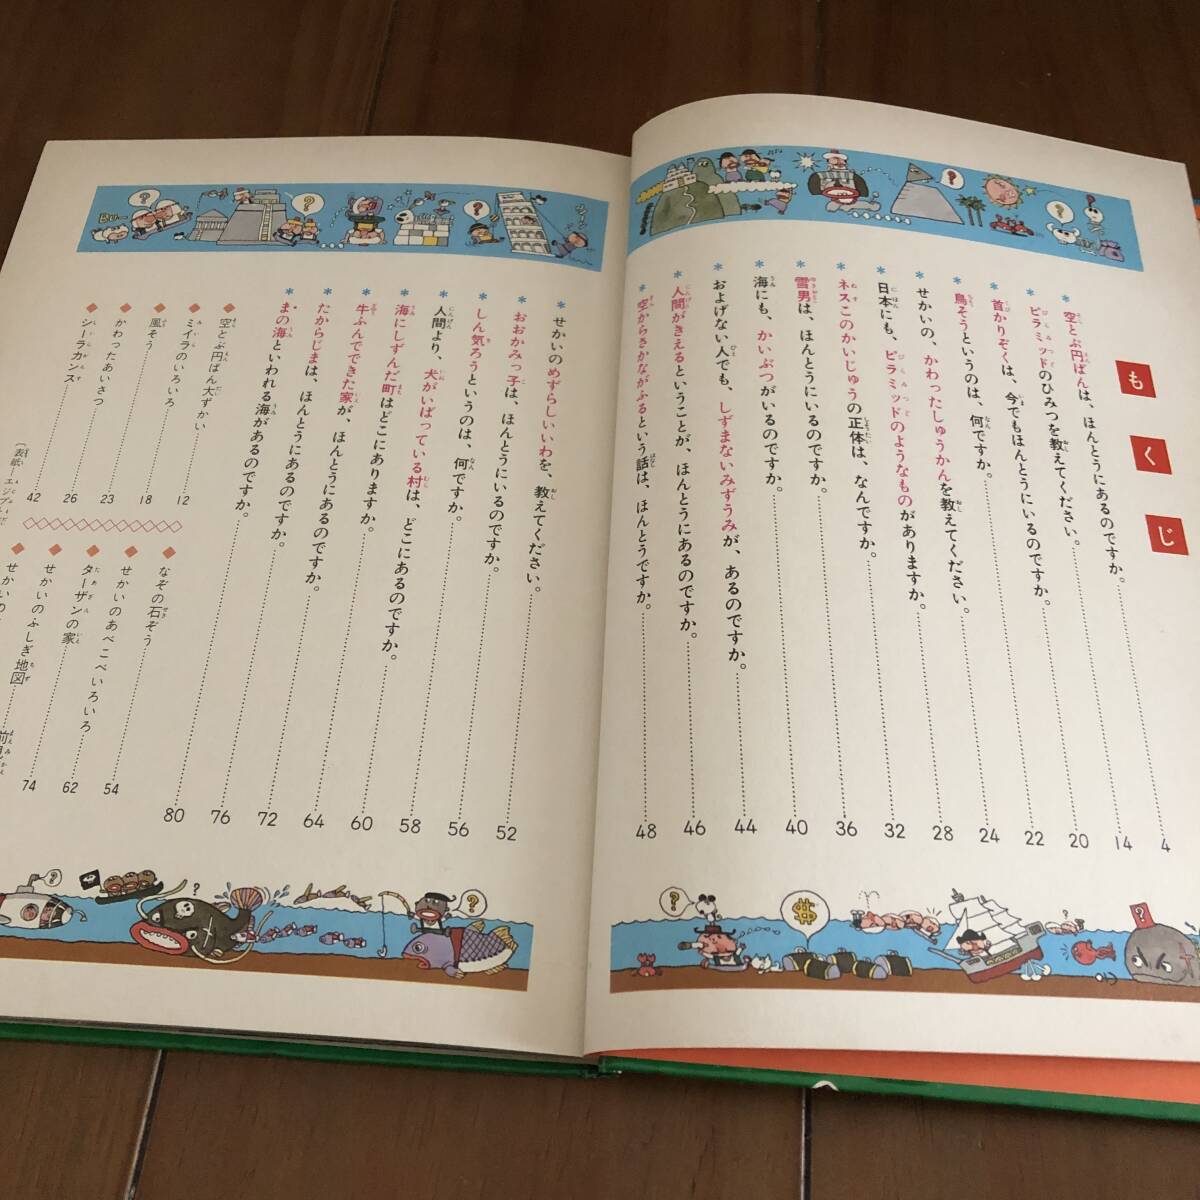 もくじ
＊空とぶ円ばんは、ほんとうにあるのですか。……4
＊ピラミッドのひみつを教えてください。……14
＊首かりぞくは、今でもほんとうにいるのですか。……20
＊鳥そうというのは、何ですか。……22
＊せかいの、かわったしゅうかんを教えてください。……24
＊日本にも、ピラミッドのようなものがありますか。……28
＊ネスこのかいじゅうの正体は、なんですか。……32
＊雪男は、ほんとうにいるのですか。……36
＊海にも、かいぶつがいるのですか。……40
＊およげない人でも、しずまないみずうみが、あるのですか。……44
＊人間がきえるということが、ほんとうにあるのですか。……46
＊空からさかながふるという話は、ほんとうですか。……48
＊せかいのめずらしいいわを、教えてください。……52
＊おおかみっ子は、ほんとうにいるのですか。……56
＊しん気ろうというのは、何ですか。……58
＊人間より、犬がいばっている村は、どこにあるのですか。……60
＊海にしずんだ町はどこにありますか。……64
＊牛ふんでできた家が、ほんとうにあるのですか。……72
＊たからじまは、ほんとうにあるのですか。……76
＊まの海といわれる海があるのですか。……80
◆空とぶ円ばん大ずかい……12
◆ミイラのいろいろ……18
◆風そう……23
◆かわったあいさつ……26
◆シーラカンス……42
◆なぞの石ぞう……54
◆せかいのあべこべいろいろ……62
◆ターザンの家……74
◆せかいのふしぎ地図
〔表紙—エジプト